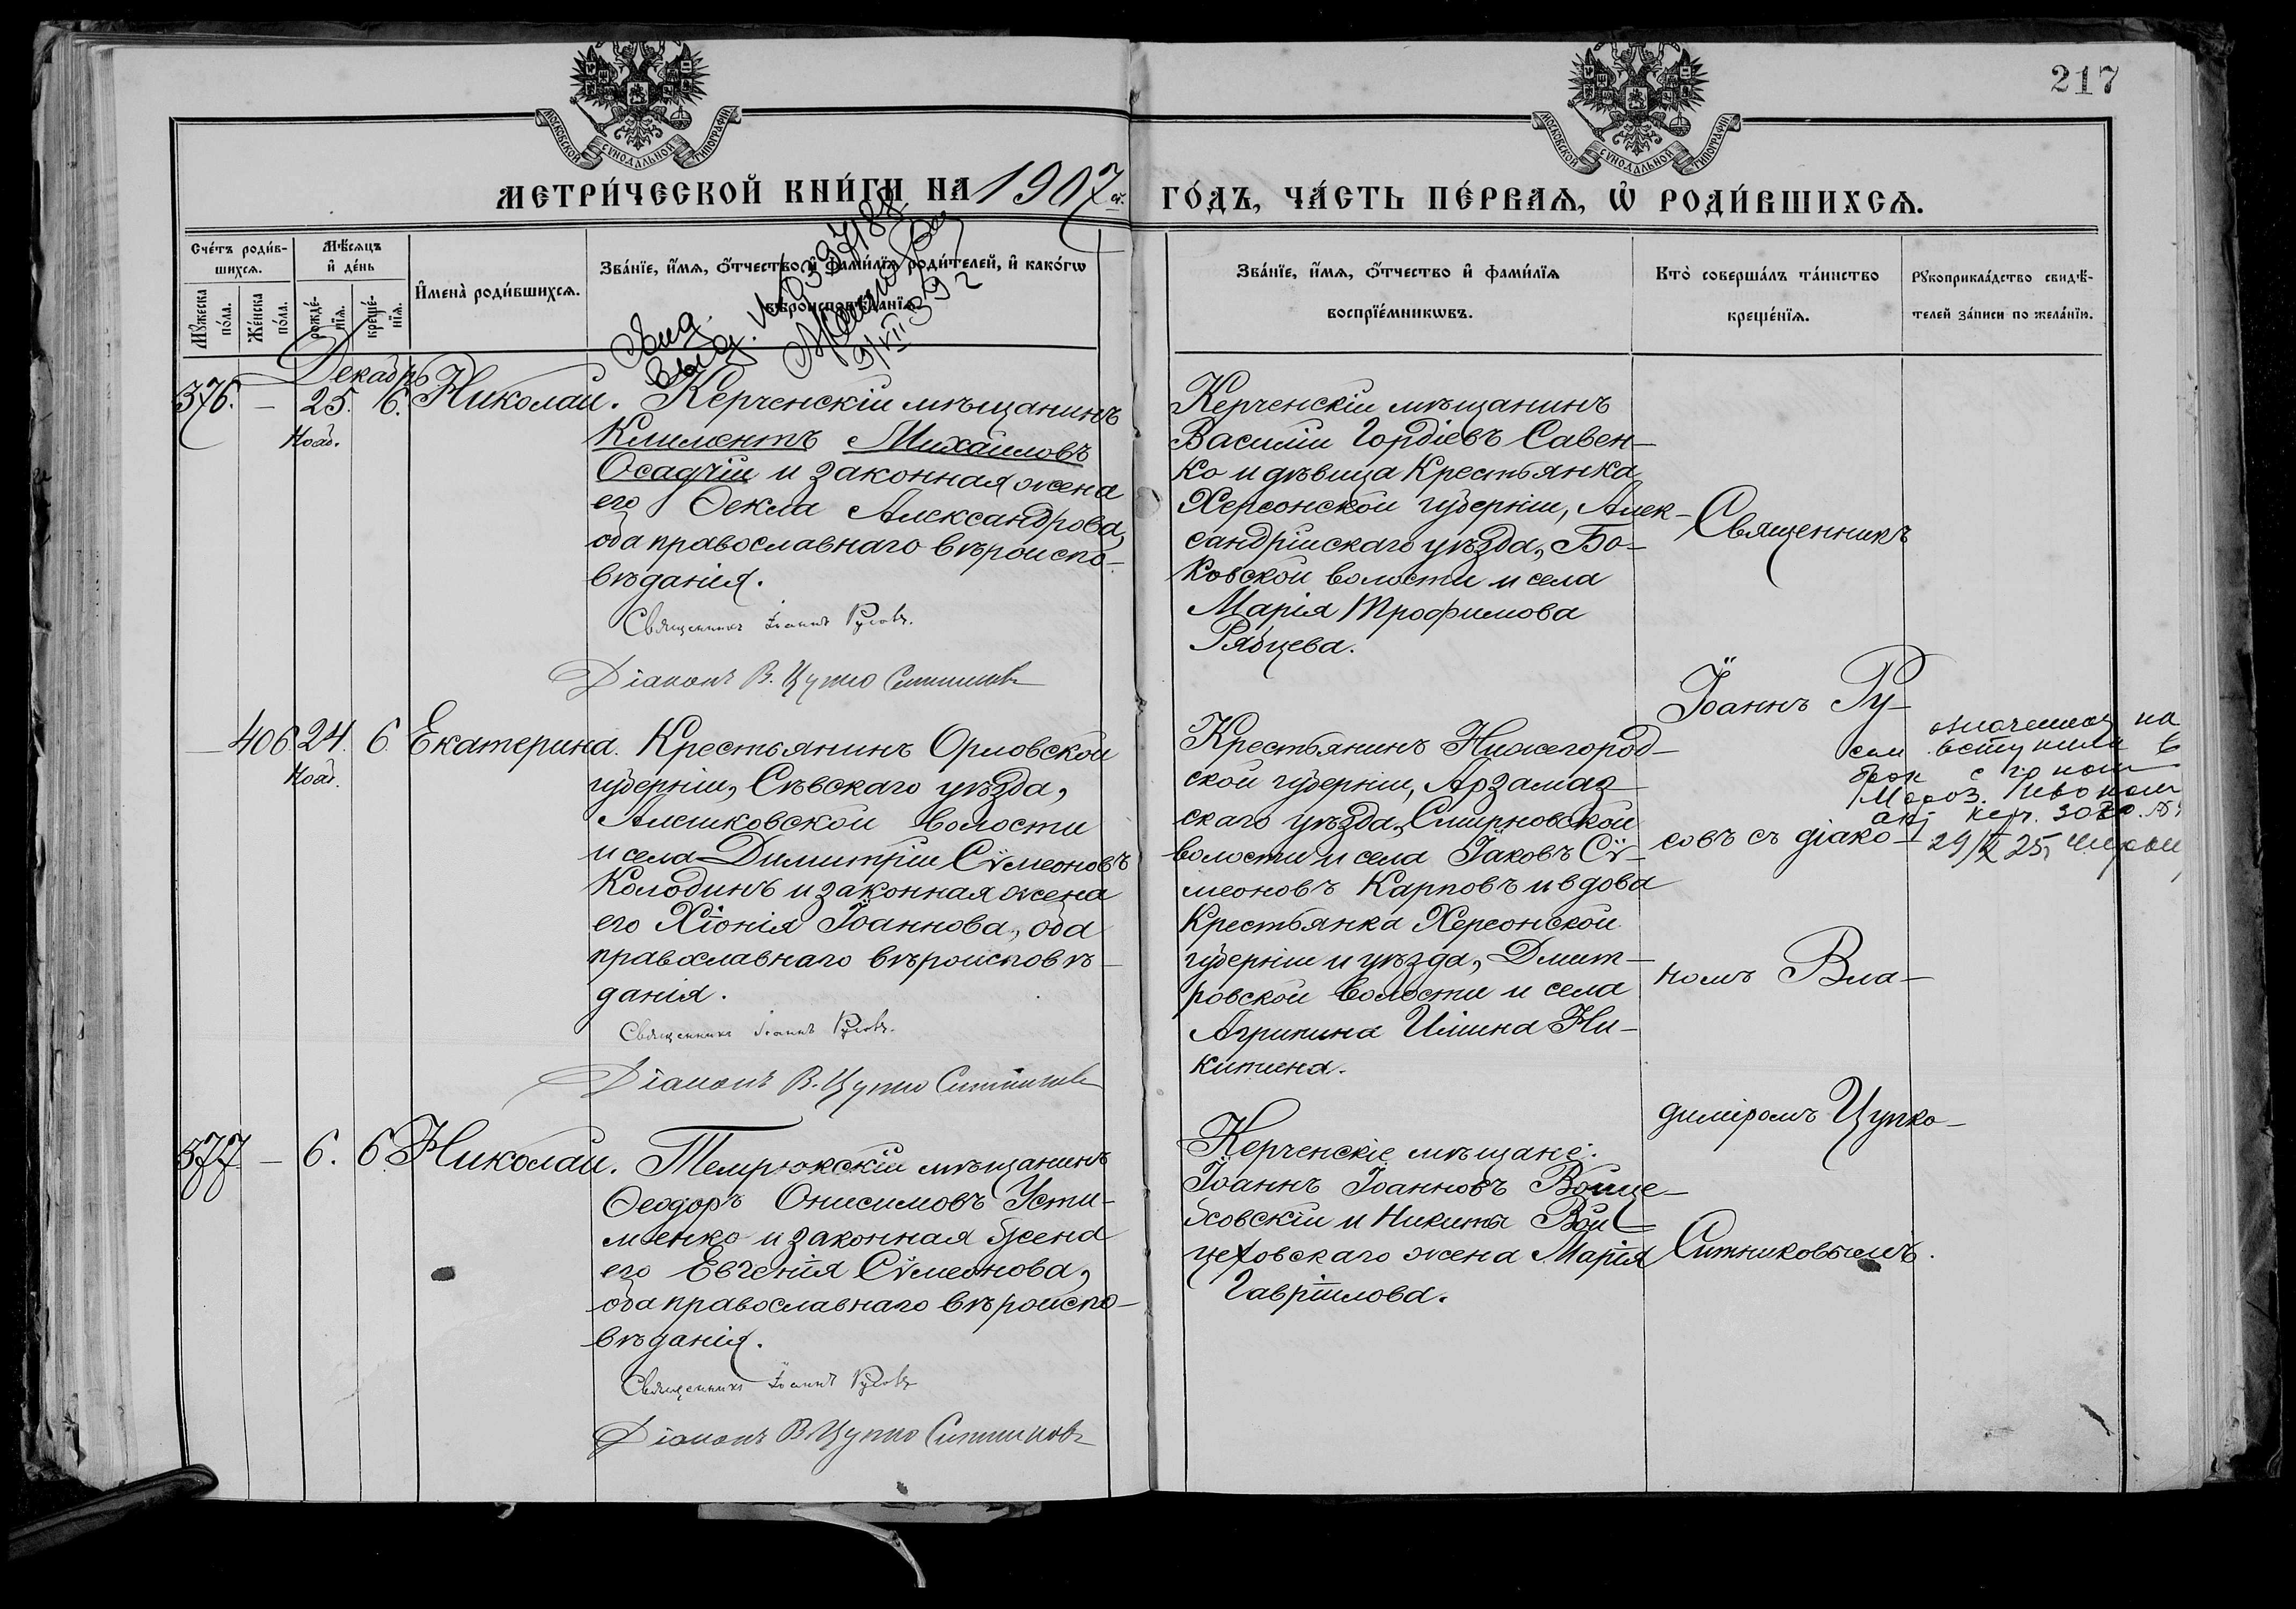 217
МОСКОВСКОЙ СѴНОДАЛЬНОЙ ТИПОГРАФІИ
МОСКОВСКОЙ СѴНОДАЛЬНОЙ ТИПОГРАФІИ
МЕТРИ́ЧЕСКОЙ КНИ́ГИ НА 1907 й.
ГО́ДЪ, ЧА́СТЬ ПЕ́РВАЯ, Ѡ҆ РОДИ́ВШИХСЯ.
Сче́тъ роди́в-
шихся.
Мѣ́сяцъ
и҆ де́нь
Мꙋ́жеска
по́ла.
Же́нска
по́ла.
рожде́-
нїя.
креще́-
нїя.
И҆мена̀ роди́вшихся.
Зва́нїе, и҆́мя, ѻ҆́тчество и҆ фами́лїя роди́телей, и҆ како́гѡ
вѣроисповѣ́данїя.
Зва́нїе, и҆́мя, ѻ҆́тчество и҆ фами́лїя
воспрїе́мникѡвъ.
Кто̀ соверша́лъ та́инство
креще́нїя.
Рꙋкоприкла́дство свидѣ́-
телей за́писи по жела́нїю.
Декабрь
376. — 25. 6. Николай.
Нояб.
Керченскій мѣщанинъ
Климентъ Михаиловъ
Осадчій и законная жена
его Ѳекла Александрова,
оба православнаго вѣроиспо-
вѣданія.
Священникъ Іоаннъ Русовъ.
Діаконъ В. Цупко Ситниковъ
Керченскій мѣщанинъ
Василій Гордіевъ Савен-
ко и дѣвица Крестьянка
Херсонской губерніи, Алек-
сандрійскаго уѣзда, Бо-
ковской волости и села
Марія Трофимова
Рябцева.
Священникъ
Іоаннъ Ру-
совъ съ діако-
номъ Вла-
диміромъ Цупко-
Ситниковымъ.
— 406 24. 6 Екатерина.
Нояб.
Крестьянинъ Орловской
губерніи, Сѣвскаго уѣзда,
Алешковской волости
и села Димитрій Сѵмеоновъ
Колодинъ и законная жена
его Хіонія Іоаннова, оба
православнаго вѣроисповѣ-
данія.
Священникъ Іоаннъ Русовъ.
Діаконъ В. Цупко Ситниковъ
Крестьянинъ Нижегород-
ской губерніи, Арзамаз-
скаго уѣзда, Смирновской
волости и села Іаковъ Сѵ-
меоновъ Карповъ и вдова
Крестьянка Херсонской
губерніи и уѣзда, Дмит-
ровской волости и села
Агрипина Илiина Ни-
китина.
вступила в
377 — 6. 6. Николай.
Темрюкскій мѣщанинъ
Ѳеодоръ Онисимовъ Усти-
менко и законная жена
его Евгенія Сѵмеонова,
оба православнаго вѣроиспо-
вѣданія.
Священникъ Іоаннъ Русовъ
Діаконъ В. Цупко Ситниковъ
Керченскіе мѣщане:
Іоаннъ Іоанновъ Войце-
ховскій и Никиты Вой-
цеховскаго жена Марія
Гавріилова.